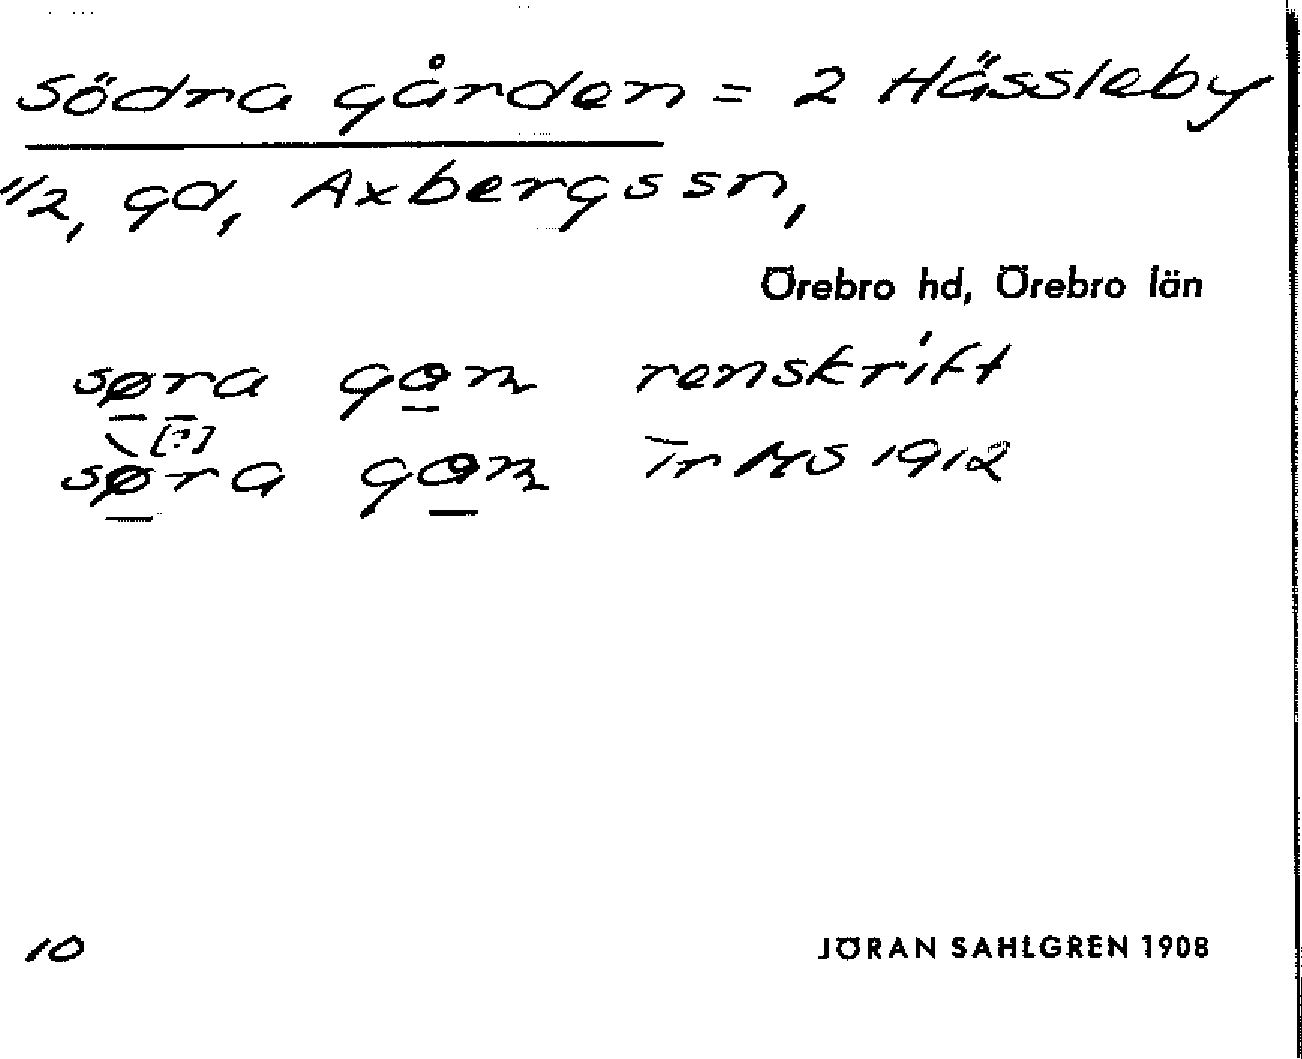 Södra gården = 2 Hässleby
1/2, gd, Axbergs sn,
Örebro hd, Örebro län
søra gɑn renskrift
[?]
søra gɑn Tr MS 1912
10
JÖRAN SAHLGREN 1908